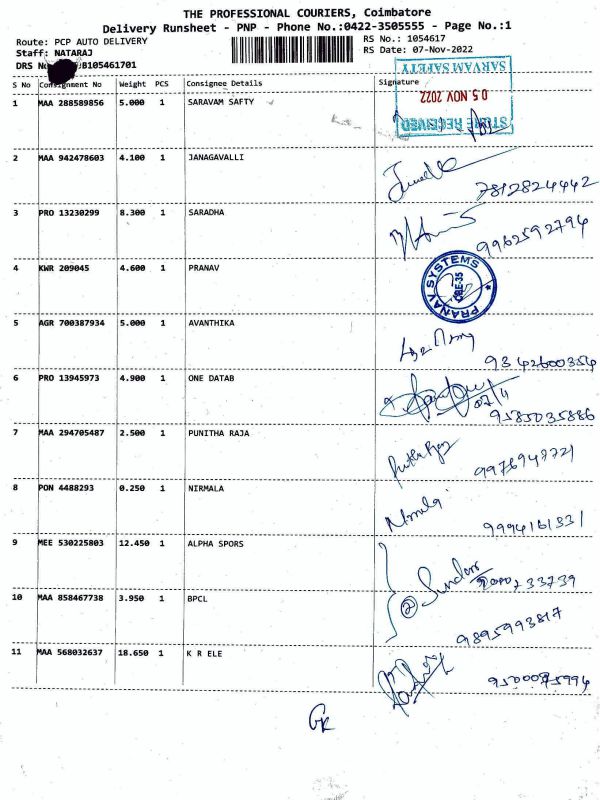 THE PROFESSIONAL COURIERS, Coimbatore
Delivery Runsheet - PNP - Phone No.:0422-3505555 - Page No.:1
Route: PCP AUTO DELIVERY
RS No.: 1054617
Staff: NATARAJ
RS Date: 07-Nov-2022
DRS B105461701
S No Consignment No Weight PCS Consignee Details Signature
SARVAM SAFETY
0 5 NOV 2022
STORE RECEIVED
1 MAA 288589856 5.000 1 SARAVAM SAFTY
2 MAA 942478603 4.100 1 JANAGAVALLI
7812824442
3 PRO 13230299 8.300 1 SARADHA
9962592794
4 KWR 209045 4.600 1 PRANAV
PRANAV SYSTEMS
CBE-35
5 AGR 700387934 5.000 1 AVANTHIKA
9342600354
6 PRO 13945973 4.900 1 ONE DATAB
07/11
9585035886
7 MAA 294705487 2.500 1 PUNITHA RAJA
9976947721
8 PON 4488293 0.250 1 NIRMALA
Nirmala
9994161331
9 MEE 530225803 12.450 1 ALPHA SPORS
② Sundar
10 MAA 858467738 3.950 1 BPCL
9895993817
11 MAA 568032637 18.650 1 K R ELE